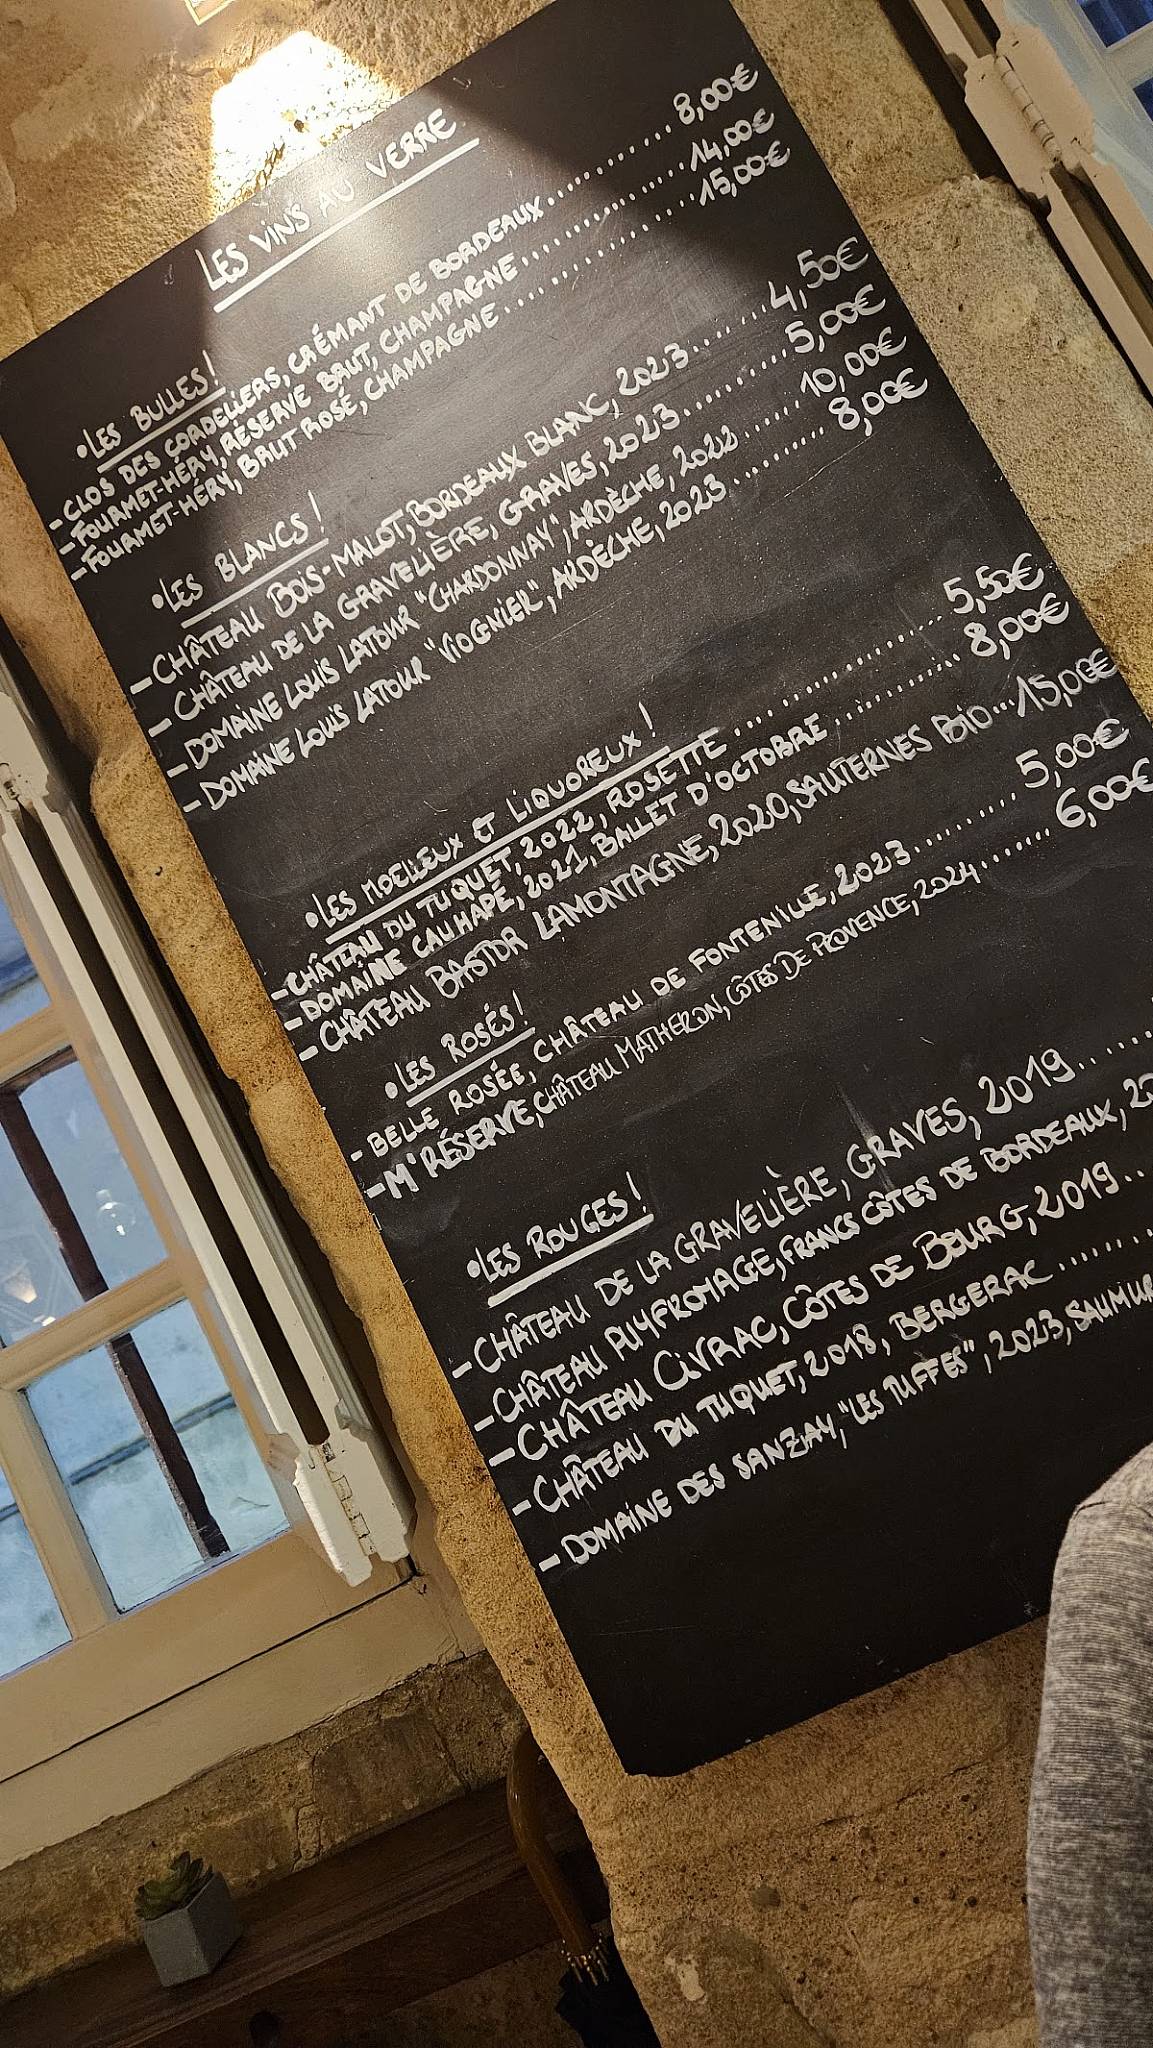 LES VINS AU VERRE
•LES BULLES!
-CLOS DES CORDELIERS, CRÉMANT DE BORDEAUX.......... 8,00€
-FOURMET-HÉRY, RÉSERVE BRUT, CHAMPAGNE .......... 14,00€
-FOURMET-HÉRY, BRUT ROSÉ, CHAMPAGNE.......... 15,00€
•LES BLANCS!
-CHÂTEAU BOIS-MALOT, BORDEAUX BLANC, 2023 ....... 4,50€
-CHÂTEAU DE LA GRAVELIÈRE, GRAVES, 2023.......... 5,00€
-DOMAINE LOUIS LATOUR "CHARDONNAY", ARDÈCHE, 2022 ....... 10,00€
-DOMAINE LOUIS LATOUR "VIOGNIER", ARDÈCHE, 2023.......... 8,00€
•LES MOELLEUX ET LIQUOREUX!
-CHÂTEAU DU TUQUET, 2022, ROSETTE .......... 5,50€
-DOMAINE CAUHAPÉ, 2021, BALLET D'OCTOBRE .......... 8,00€
-CHÂTEAU BASTOR LAMONTAGNE, 2020, SAUTERNES BIO...15,00€
•LES ROSÉS!
-BELLE ROSÉE, CHÂTEAU DE FONTENILLE, 2023.......... 5,00€
-M'RÉSERVE, CHÂTEAU MATHERON, CÔTES DE PROVENCE, 2024....... 6,00€
•LES ROUGES!
-CHÂTEAU DE LA GRAVELIÈRE, GRAVES, 2019.......
-CHÂTEAU PUYFROMAGE, FRANCS CÔTES DE BORDEAUX,
-CHÂTEAU CIVRAC, CÔTES DE BOURG, 2019...
-CHÂTEAU DU TUQUET, 2018, BERGERAC .......
-DOMAINE DES SANZAY, "LES TUFFES", 2023, SAUMUR